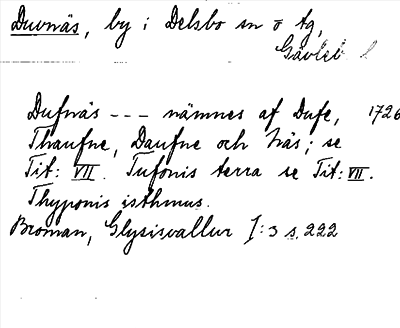 Duvnäs, by i Delsbo sn o tg,
Gävleb l
Dufnäs --- nämnes af Dufe, 1726
Thaufne, Daufne och Näs; se
Tit: VII. Tufonis terra se Tit: VII.
Thyponis isthmus.
Broman, Glysisvallur I:3 s. 222